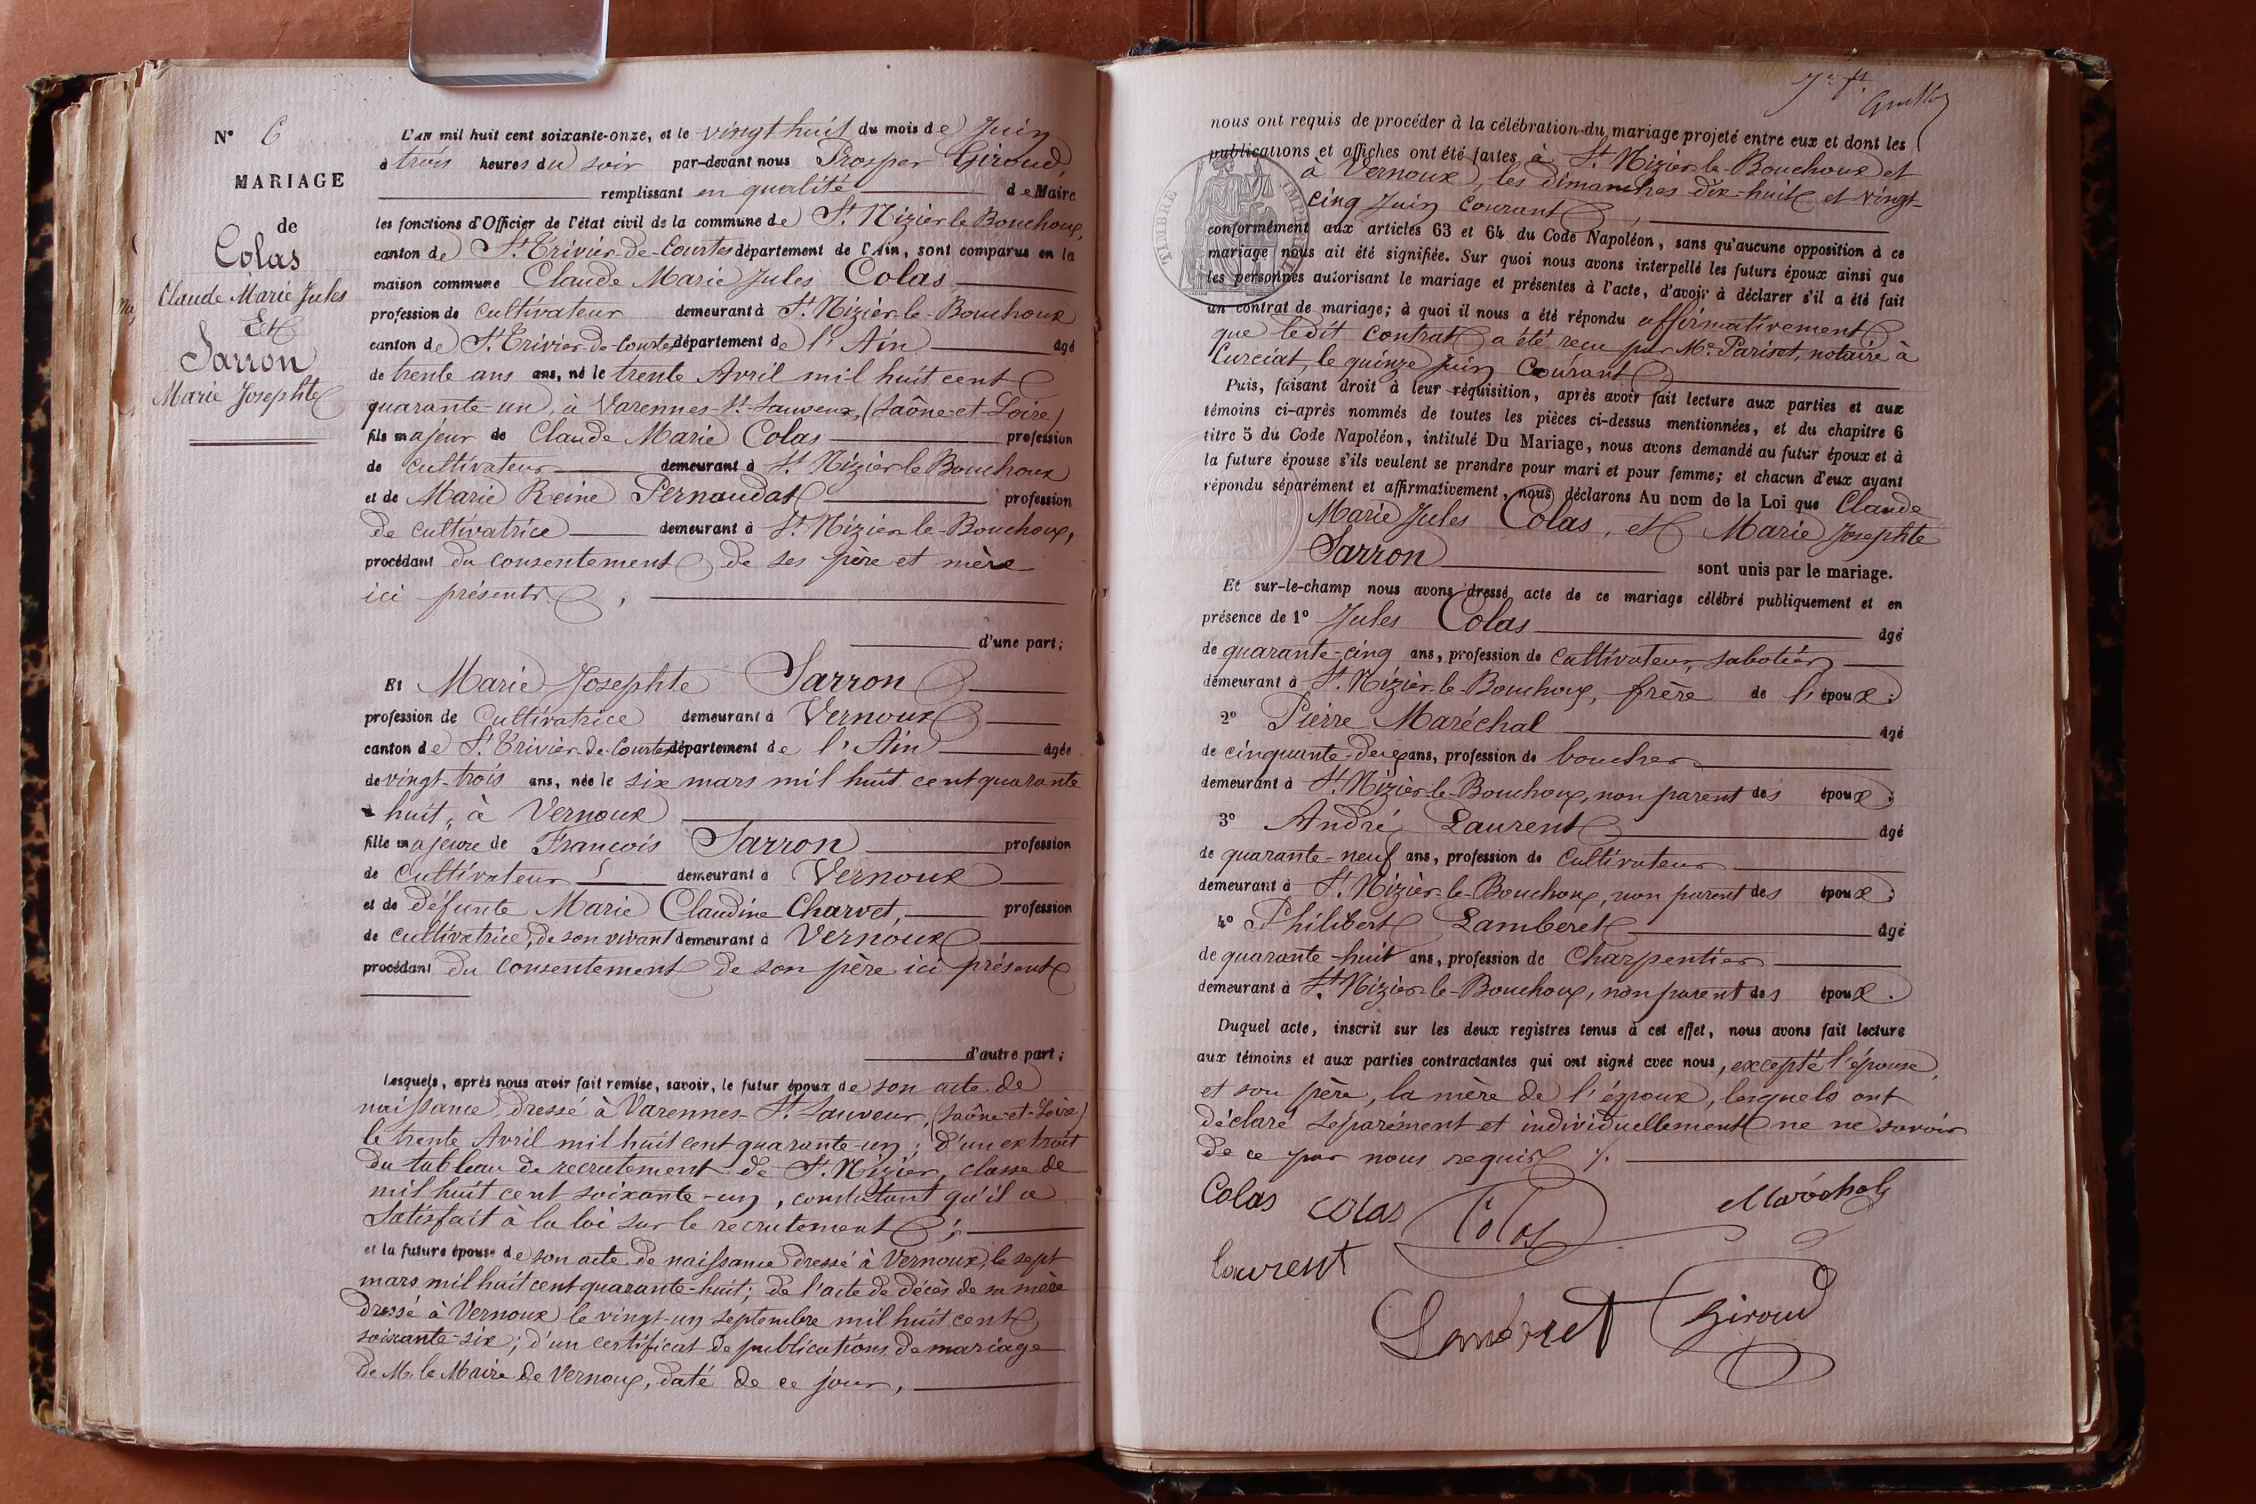 N° 6
MARIAGE
de
Colas
Claude Marie Jules
Et
Sarron
Marie Josephte
L'an mil huit cent soixante-onze, et le vingt huit du mois de Juin
à trois heures du soir par-devant nous Prosper Giroud,
remplissant en qualité de Maire
les fonctions d'Officier de l'état civil de la commune de St Nizier le Bouchoux,
canton de St Trivier-de-Courtes département de l'Ain, sont comparus en la
maison commune Claude Marie Jules Colas
profession de cultivateur demeurant à St Nizier-le-Bouchoux
canton de St Trivier-de-Courtes département de l'Ain âgé
de trente ans ans, né le trente Avril mil huit cent
quarante-un, à Varennes-St-Sauveur, (Saône-et-Loire)
fils majeur de Claude Marie Colas profession
de cultivateur demeurant à St Nizier le Bouchoux
et de Marie Reine Pernaudat profession
de cultivatrice demeurant à St Nizier-le-Bouchoux,
procédant du consentement de ses père et mère
ici présents,
d'une part;
Et Marie Josephte Sarron
profession de Cultivatrice demeurant à Vernoux
canton de St Trivier-de-Courtes département de l'Ain âgée
de vingt-trois ans, née le six mars mil huit cent quarante
huit, à Vernoux
fille majeure de François Sarron profession
de cultivateur demeurant à Vernoux
et de défunte Marie Claudine Charvet, profession
de cultivatrice, de son vivant demeurant à Vernoux
procédant du consentement de son père ici présent
d'autre part;
Lesquels, après nous avoir fait remise, savoir, le futur époux de son acte de
naissance, dressé à Varennes-St-Sauveur, (Saône-et-Loire)
le trente Avril mil huit cent quarante-un; d'un extrait
du tableau de recrutement de St Nizier, classe de
mil huit cent soixante-un, constatant qu'il a
satisfait à la loi sur le recrutement;
et la future épouse de son acte de naissance dressé à Vernoux, le sept
mars mil huit cent quarante-huit; de l'acte de décès de sa mère
dressé à Vernoux le vingt-un septembre mil huit cent
soixante-six; d'un certificat de publications de mariage
de Mr le Maire de Vernoux, daté de ce jour,
nous ont requis de procéder à la célébration du mariage projeté entre eux et dont les
publications et affiches ont été faites à St Nizier-le-Bouchoux et
à Vernoux, les dimanches dix-huit et vingt-
cinq Juin courant
TIMBRE IMPERIAL
conformément aux articles 63 et 64 du Code Napoléon, sans qu'aucune opposition à ce
mariage nous ait été signifiée. Sur quoi nous avons interpellé les futurs époux ainsi que
les personnes autorisant le mariage et présentes à l'acte, d'avoir à déclarer s'il a été fait
un contrat de mariage; à quoi il nous a été répondu affirmativement
que ledit contrat a été reçu par Me Pariset, notaire à
Curciat, le quinze juin Courant
Puis, faisant droit à leur réquisition, après avoir fait lecture aux parties et aux
témoins ci-après nommés de toutes les pièces ci-dessus mentionnées, et du chapitre 6
titre 5 du Code Napoléon, intitulé Du Mariage, nous avons demandé au futur époux et à
la future épouse s'ils veulent se prendre pour mari et pour femme; et chacun d'eux ayant
répondu séparément et affirmativement, nous déclarons Au nom de la Loi que Claude
Marie Jules Colas, et Marie Josephte
Sarron sont unis par le mariage.
Et sur-le-champ nous avons dressé acte de ce mariage célébré publiquement et en
présence de 1° Jules Colas âgé
de quarante-cinq ans, profession de cultivateur, sabotier
demeurant à St Nizier-le-Bouchoux, frère de l'époux;
2° Pierre Maréchal âgé
de cinquante-deux ans, profession de boucher
demeurant à St Nizier-le-Bouchoux, non parent des époux;
3° André Laurent âgé
de quarante-neuf ans, profession de Cultivateur
demeurant à St Nizier-le-Bouchoux, non parent des époux;
4° Philibert Lamberet âgé
de quarante-huit ans, profession de Charpentier
demeurant à St Nizier-le-Bouchoux, non parent des époux.
Duquel acte, inscrit sur les deux registres tenus à cet effet, nous avons fait lecture
aux témoins et aux parties contractantes qui ont signé avec nous, excepté l'épouse,
et son père, la mère de l'époux, lesquels ont
déclaré séparément et individuellement ne ne savoir
de ce par nous requis ./.
Colas Colas Colas Maréchal
Laurent
Lamberet Giroud